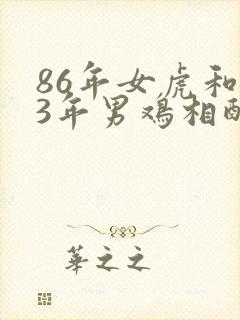 86年女虎和
3年男鸡相配
華之之